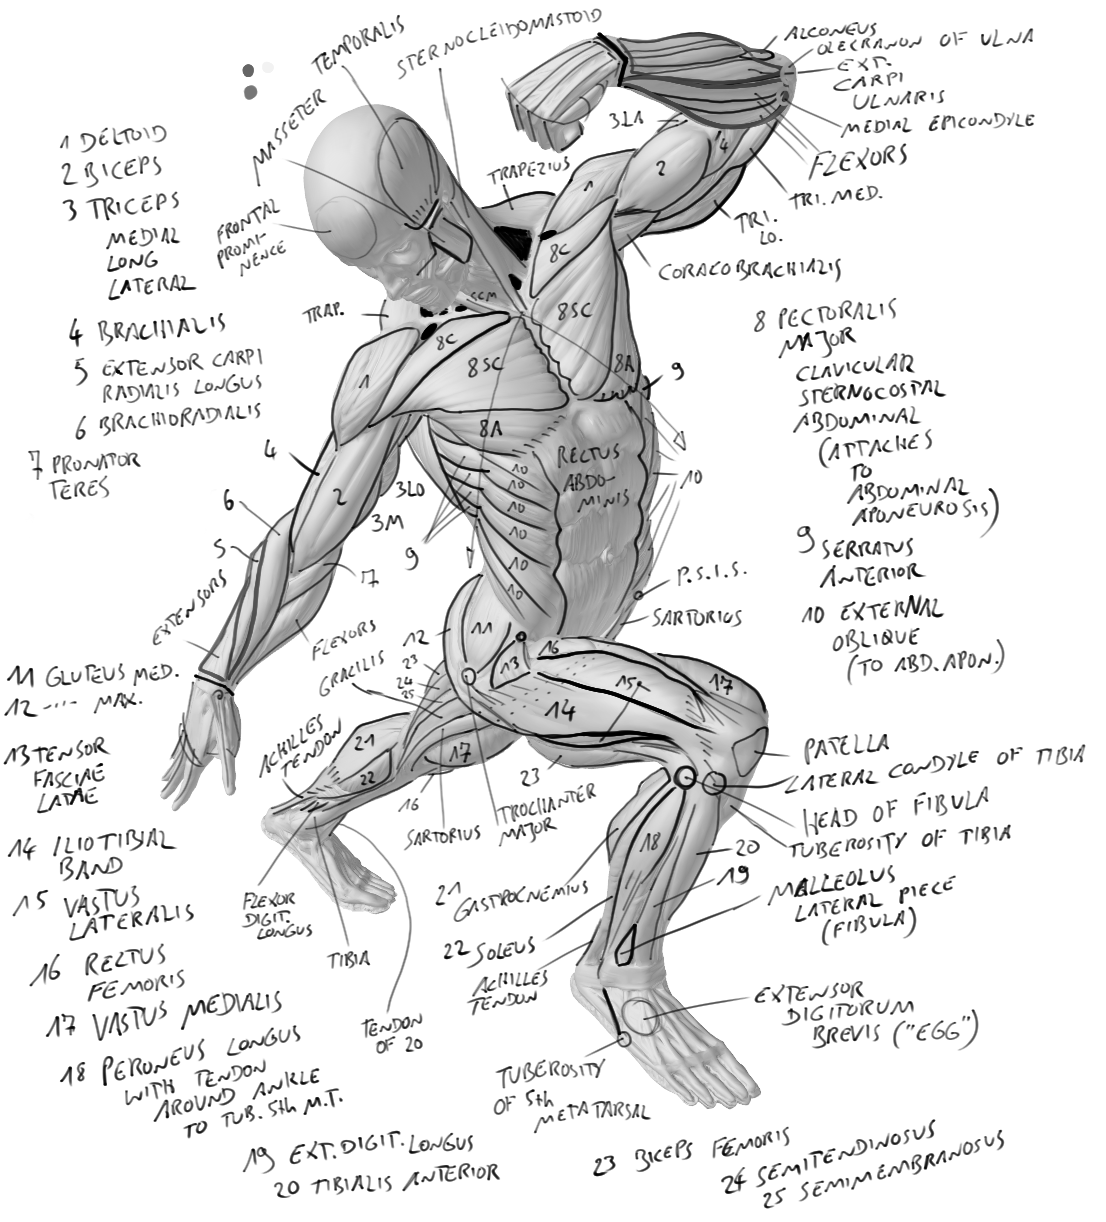 TEMPORALIS
STERNOCLEIDOMASTOID
MASSETER
FRONTAL
PROMI-
NENCE
TRAPEZIUS
3LA
ALCONEUS
OLECRANON OF ULNA
EXT.
CARPI
ULNARIS
MEDIAL EPICONDYLE
FLEXORS
TRI. MED.
TRI.
LO.
CORACOBRACHIALIS
1 DELTOID
2 BICEPS
3 TRICEPS
MEDIAL
LONG
LATERAL
4 BRACHIALIS
5 EXTENSOR CARPI
RADIALIS LONGUS
6 BRACHIORADIALIS
7 PRONATOR
TERES
TRAP.
SCM
1
2
4
8C
8SC
8A
9
8C
8SC
1
8A
10
10
10
10
10
10
10
RECTUS
ABDO-
MINIS
4
2
3LO
3M
6
5
7
9
EXTENSORS
FLEXORS
8 PECTORALIS
MAJOR
CLAVICULAR
STERNOCOSTAL
ABDOMINAL
(ATTACHES
TO
ABDOMINAL
APONEUROSIS)
9 SERRATUS
ANTERIOR
10 EXTERNAL
OBLIQUE
(TO ABD. APON.)
P.S.I.S.
SARTORIUS
GRACILIS
12
11
23
24
25
13
16
15
14
17
11 GLUTEUS MED.
12 ---- MAX.
13 TENSOR
FASCIAE
LATAE
14 ILIOTIBIAL
BAND
15 VASTUS
LATERALIS
16 RECTUS
FEMORIS
17 VASTUS MEDIALIS
18 PERONEUS LONGUS
WITH TENDON
AROUND ANKLE
TO TUB. 5th M.T.
19 EXT. DIGIT. LONGUS
20 TIBIALIS ANTERIOR
ACHILLES
TENDON
21
22
17
16
23
SARTORIUS
TROCHANTER
MAJOR
FLEXOR
DIGIT.
LONGUS
TIBIA
TENDON
OF 20
PATELLA
LATERAL CONDYLE OF TIBIA
HEAD OF FIBULA
TUBEROSITY OF TIBIA
18
20
19
MALLEOLUS
LATERAL PIECE
(FIBULA)
21 GASTROCNEMIUS
22 SOLEUS
ACHILLES
TENDON
EXTENSOR
DIGITORUM
BREVIS ("EGG")
TUBEROSITY
OF 5th
METATARSAL
23 BICEPS FEMORIS
24 SEMITENDINOSUS
25 SEMIMEMBRANOSUS